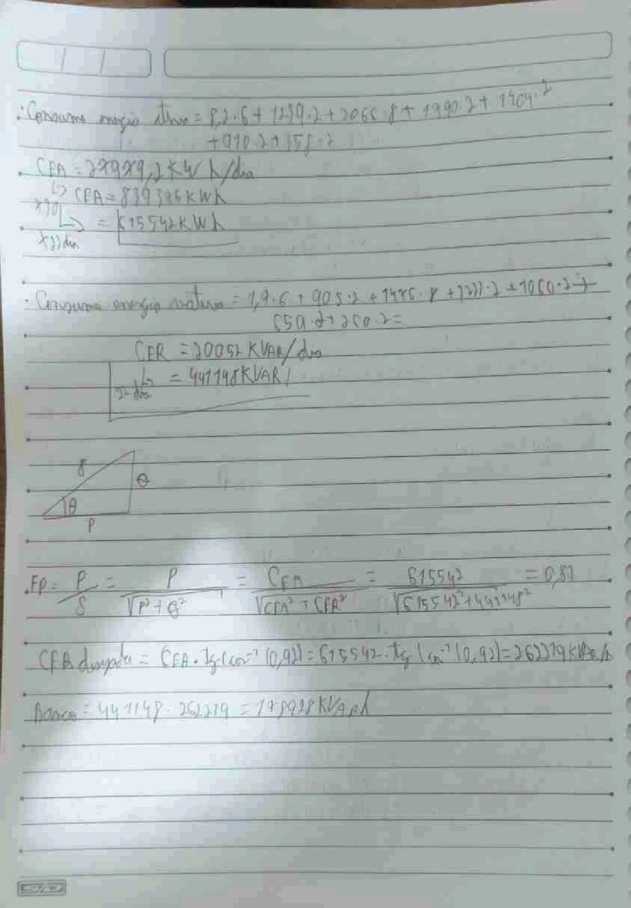 : Consumo energia ativa = 8,2.6 + 1239.2 + 2066.8 + 1990.2 + 1404.2
+ 910.2 + 358.2
. CEA = 27979,2 KW h/dia
x30 ↳ CEA = 839376 KWh
x22 dia ↳ = 615542 KWh
: Consumo energia reativa = 1,9.6 + 905.2 + 1476.8 + 1277.2 + 1060.2 +
650.2 + 260.2 =
CER = 20052 KVAR/dia
22 dia ↳ = 441148 KVAR
S θ
θ
P
. FP = P/S = P/√P²+θ² = CEA/√CEA²+CER² = 615542/√615542²+441148² = 0,81
CER desejada = CEA . tg (cos⁻¹ (0,92)) = 615542 . tg (cos⁻¹ (0,92)) = 262219 KVAR/h
Banco = 441148 - 262219 = 178928 KVARh